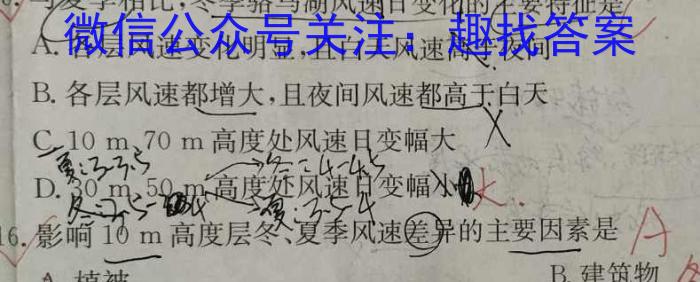 与夏季相比,冬季骆马湖风速日变化的主要特征是
微信公众号关注:趣找答案
A. 各层风速变化明显,且白天风速高于夜间
B. 各层风速都增大,且夜间风速都高于白天
C. 10 m、70 m 高度处风速日变幅大
夏:3-3.5 冬:4-4.5
D. 30 m、50 m 高度处风速日变幅小 大.
冬:3.5-4 夏:3.5-4
16. 影响 10 m 高度层冬、夏季风速差异的主要因素是 A
A. 植被 B. 建筑物